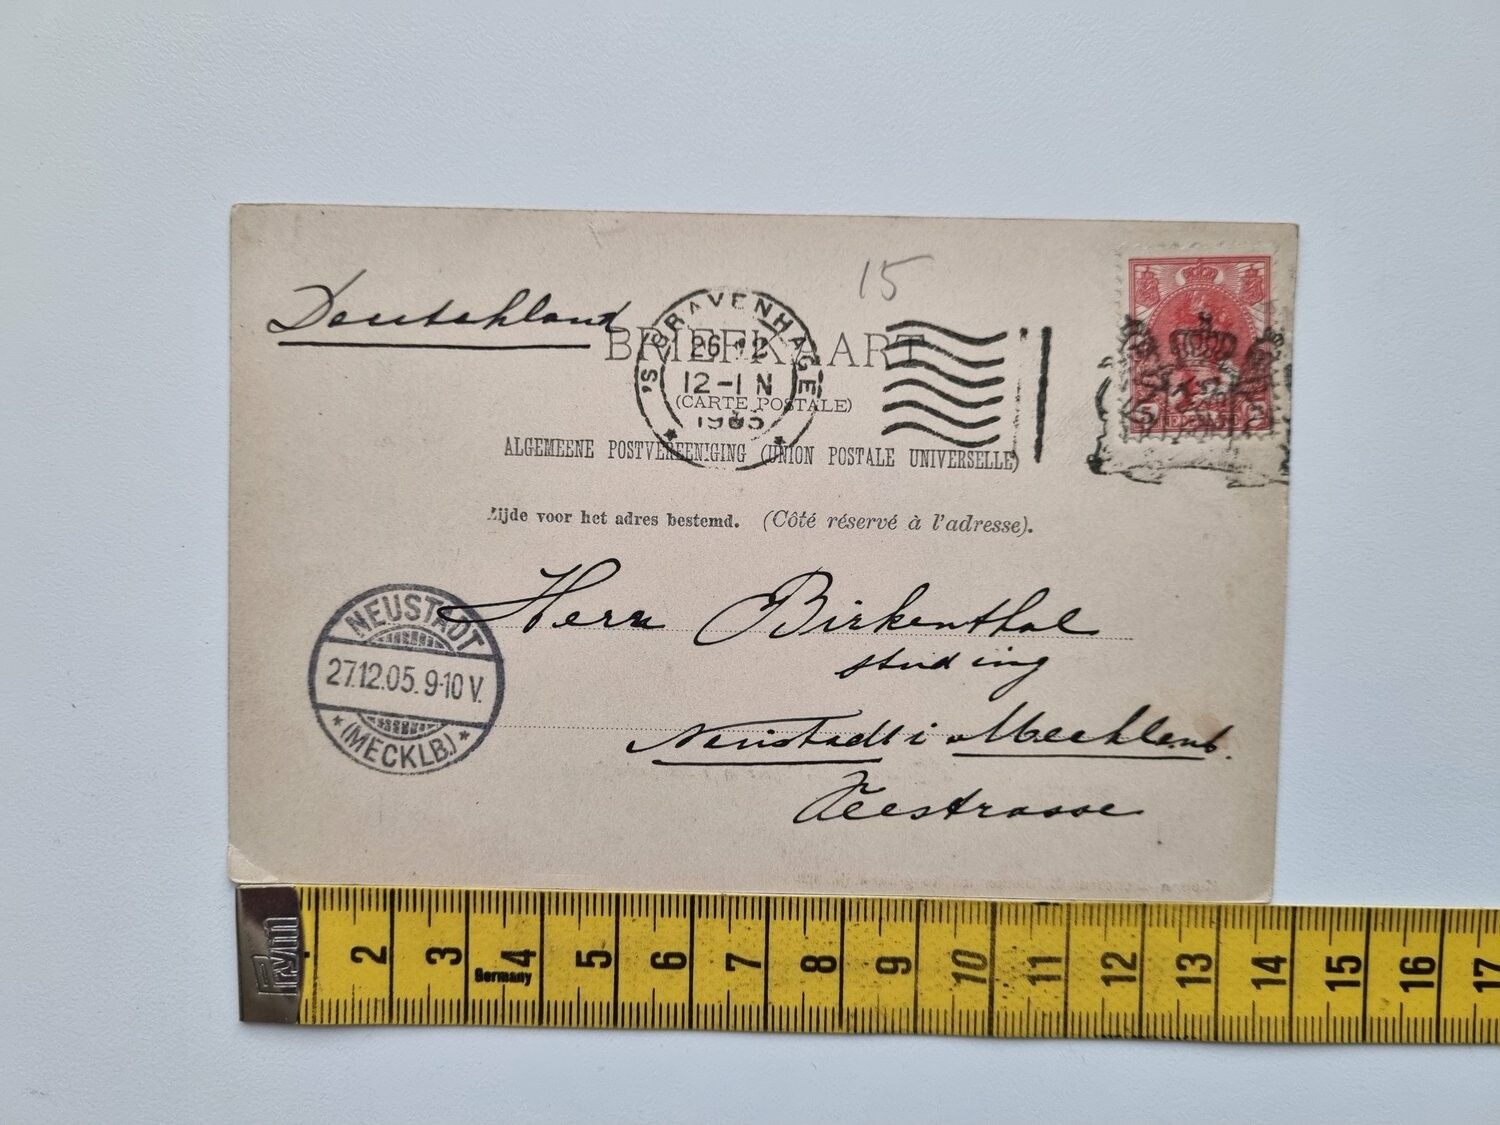 15
Deutschland
BRIEFKAART
'S GRAVENHAGE
26 12
12-1 N
1905
(CARTE POSTALE)
5
NEDERLAND
ALGEMEENE POSTVEREENIGING (UNION POSTALE UNIVERSELLE)
Zijde voor het adres bestemd. (Côté réservé à l'adresse).
NEUSTADT
27.12.05. 9-10 V.
(MECKLB.)
Herrn Birkenthal
stud ing
Neustadt i Mecklenb.
Prym
Germany
2 3 4 5 6 7 8 9 10 11 12 13 14 15 16 17